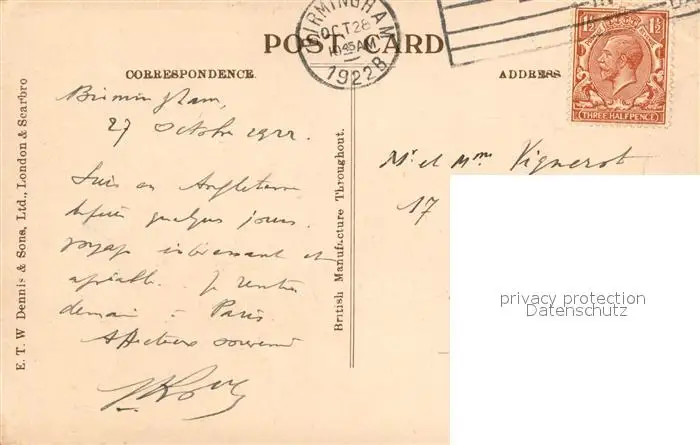 BIRMINGHAM
OCT 28
1045AM
1922
B
1½ 1½
THREE HALFPENCE
POST CARD
CORRESPONDENCE.
ADDRESS
Birmingham,
27 Octobre 1922.
Suis en Angleterre
depuis quelques jours.
voyage intéressant et
agréable. Je rentre
demain à Paris
Affectueux souvenir
Mr et Mme Vignerot
17
British Manufacture Throughout.
E. T. W Dennis & Sons, Ltd., London & Scarbro
privacy protection
Datenschutz